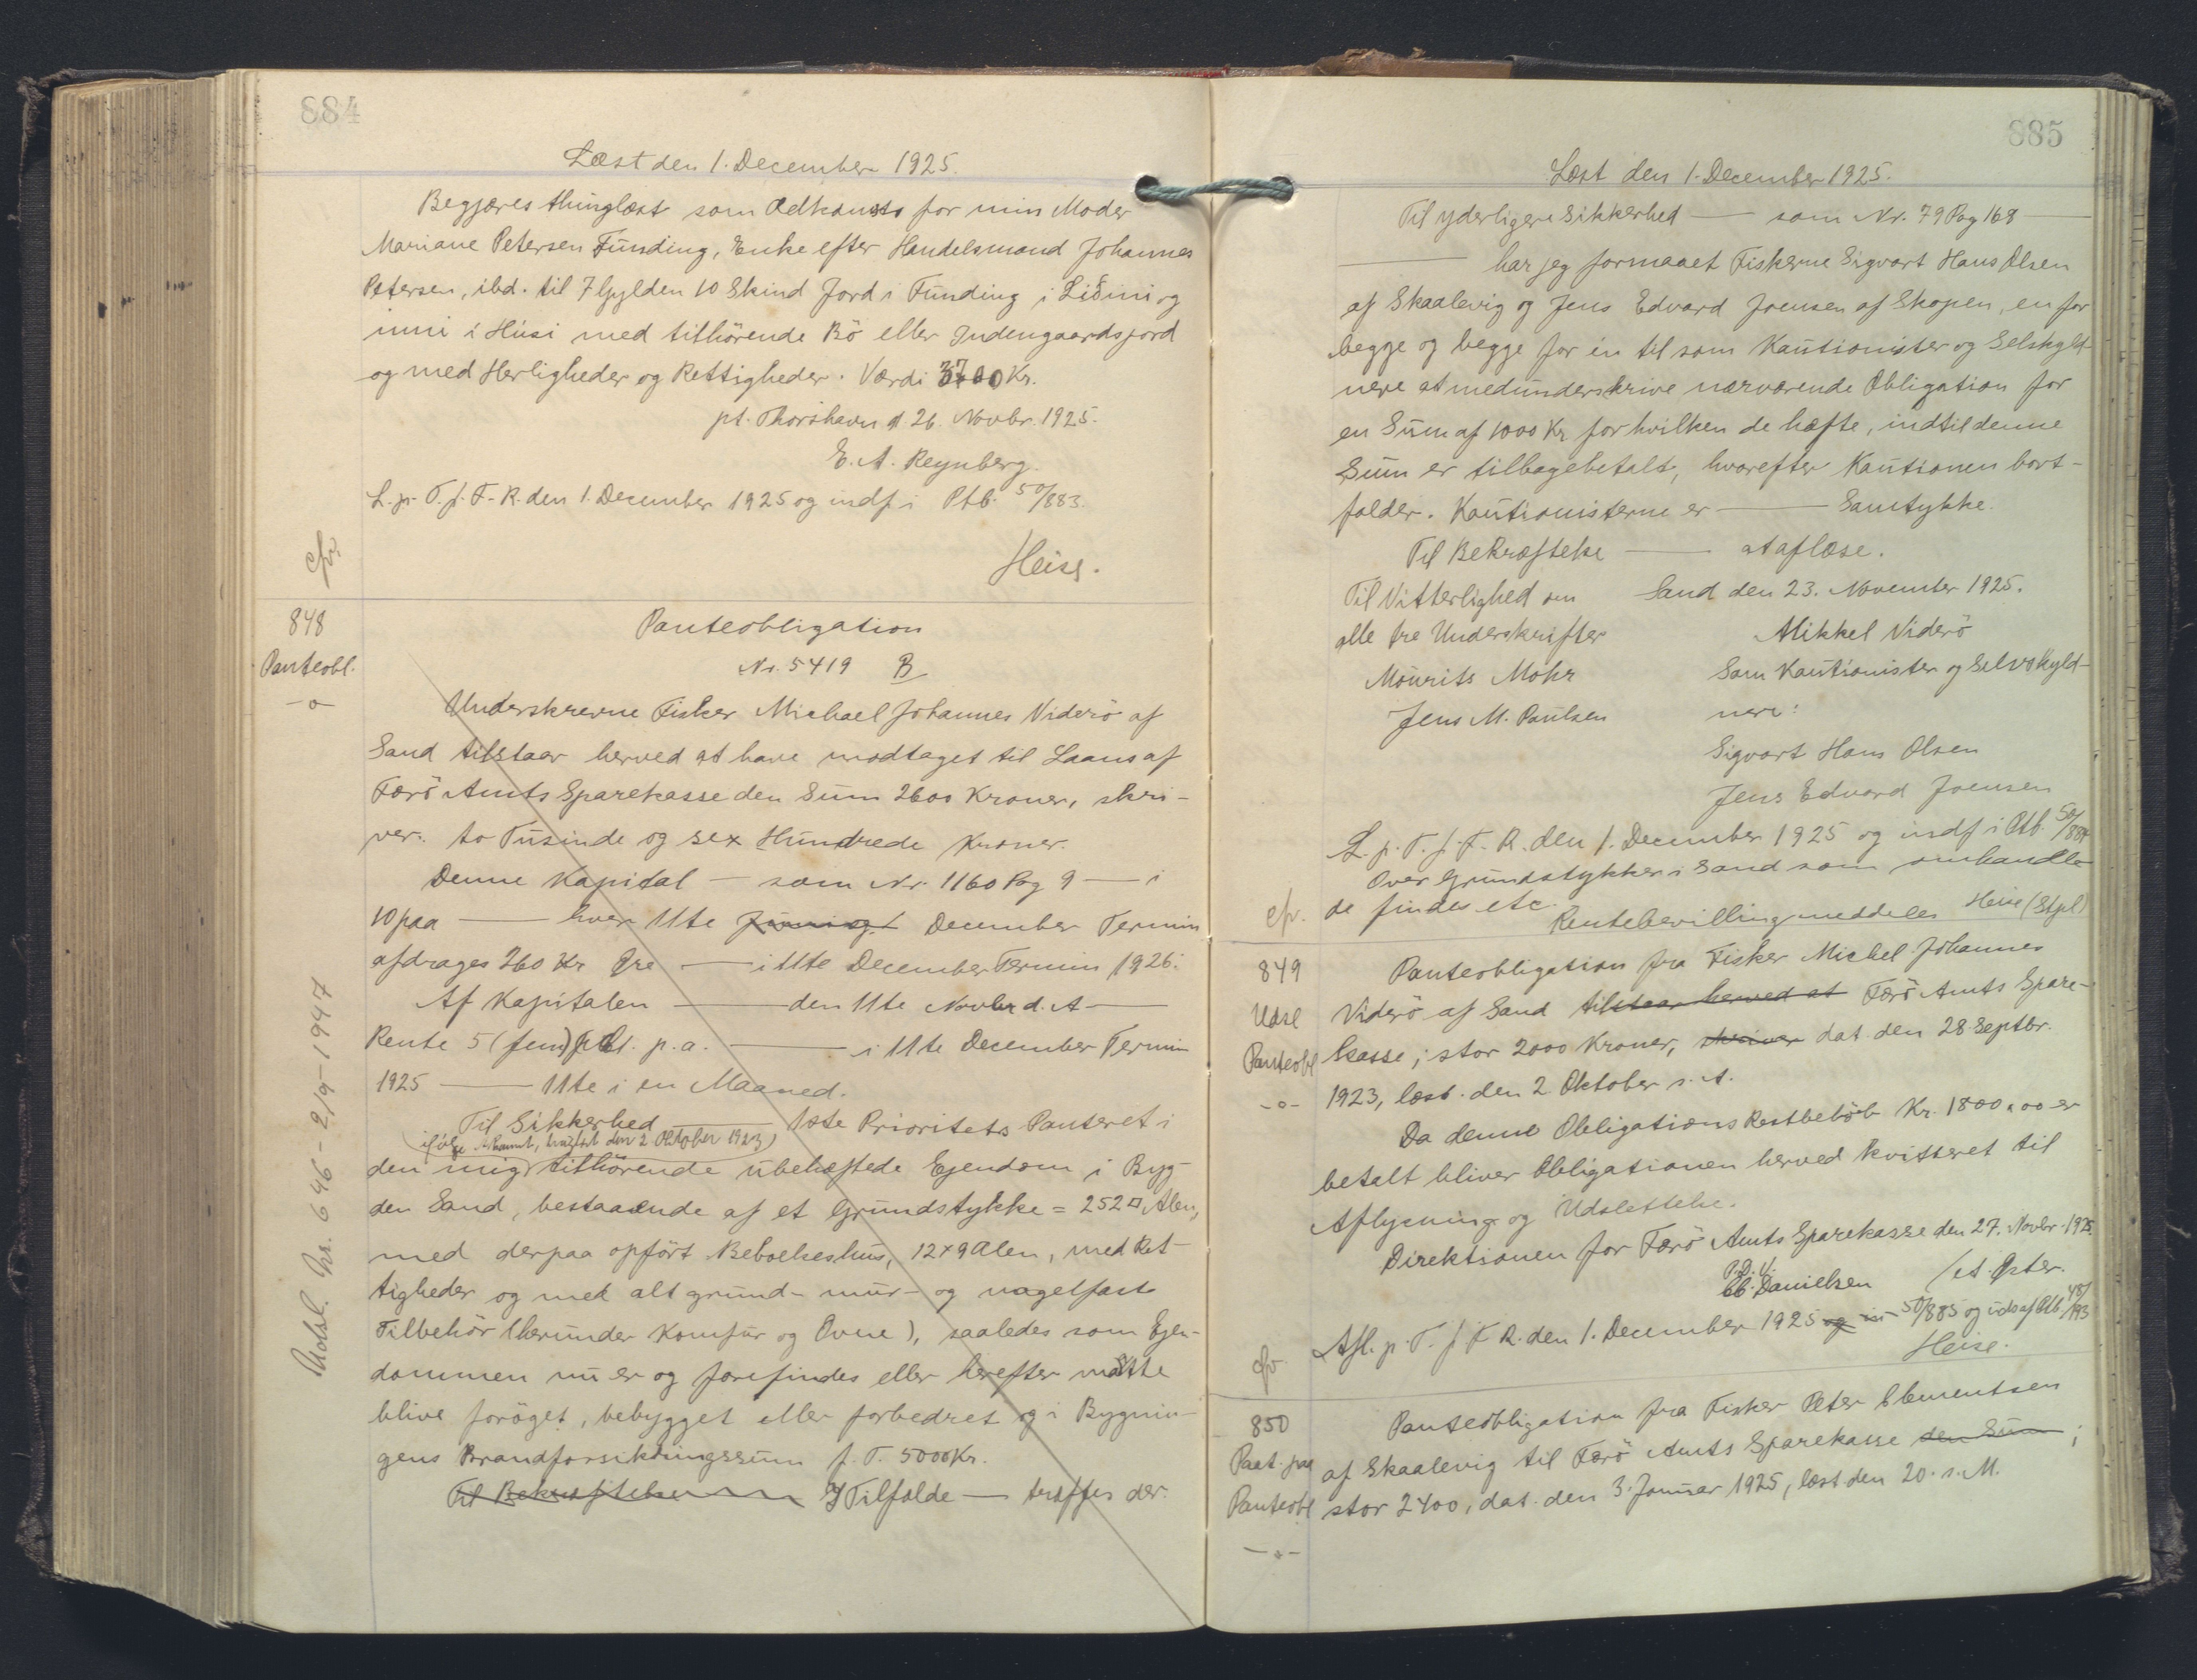 884
Læst den 1. December 1925.
Begjæres thinglæst som Adkomst for min Moder
Mariane Petersen Funding, Enke efter Handelsmand Johannes
Petersen, ibd. til 7 Gylden 10 Skind Jord i Funding i Liðini og
inni í Húsi med tilhörende Bö eller Indengaardsjord
og med Herligheder og Rettigheder. Værdi 3700 Kr.
pt. Thorshavn d. 26. Novbr. 1925.
E. A. Reynberg.
L. p. T. f. F. R. den 1. December 1925 og indf. i Ptb. 50/883.
Heise.
cfr.
848
Panteobl.
-o-
Panteobligation
Nr. 5419 B
Underskrevne Fisker Michael Johannes Viderö af
Sand tilstaar herved at have modtaget til Laans af
Færö Amts Sparekasse den Sum 2600 Kroner, skri-
ver: to Tusinde og sex Hundrede Kroner.
Denne Kapital — som Nr. 1160 Pag 9 — i
10 paa — hver 11te Juni og December Termin
afdrages 260 Kr — i 11te December Termin 1926.
Af Kapitalen — den 11te Novbr d. A —
Rente 5 (fem) pCt. p.a. — i 11te December Termin
1925 — 11te i en Maaned.
Til Sikkerhed — 1ste Prioritets Panteret i
(ifölge Adkomst, tinglæst den 2 Oktober 1923)
den mig tilhörende ubehæftede Ejendom i Byg-
den Sand, bestaaende af et Grundstykke = 252 □ Alen,
med derpaa opfört Beboelseshus, 12 x 9 Alen, med Ret-
tigheder og med alt grund- mur- og nagelfast
Tilbehör (herunder Komfur og Ovne), saaledes som Ejen-
dommen nu er og forefindes eller herefter maatte
blive foröget, bebygget eller forbedret og i Bygnin-
gens Brandforsikringssum p. T. 5000 Kr.
Til Bekræftelse I Tilfælde — træffes der
Nr. 646 - 2/9 - 1947
885
Læst den 1. December 1925.
Til yderligere Sikkerhed — som Nr. 79 Pag 168 —
— har jeg formaaet Fiskerne Sigvart Hans Olsen
af Skaalevig og Jens Edvard Joensen af Skopen, en for
begge og begge for én til som Kautionister og Selskyld-
nere at medunderskrive nærværende Obligation for
en Sum af 1000 Kr for hvilken de hæfte, indtil denne
Sum er tilbagebetalt, hvorefter Kautionen bort-
falder. Kautionisterne er — Samtykke.
Til Bekræftelse — at aflæse.
Til Vitterlighed om Sand den 23. November 1925.
alle tre Underskrifter Mikkel Viderö
Mourits Mohr Som Kautionister og Selvskyld-
Jens M. Paulsen nere:
Sigvart Hans Olsen
Jens Edvard Joensen
L. p. T. f. F. R. den 1. December 1925 og indf i Ptb. 50/884
Over Grundstykker i Sand som omhandle-
de findes etc.
Rentebevilling meddeles Heise (Stpl)
cfr.
849
Udsl
Panteobl
-o-
Panteobligation fra Fisker Michel Johannes
Viderö af Sand tilstaar herved at Færö Amts Spare-
kasse; stor 2000 Kroner, skriver dat. den 28 Septbr.
1923, læst. den 2 Oktober s. A.
Da denne Obligations Restbelöb Kr. 1800,00 er
betalt bliver Obligationen herved kvitteret til
Aflysning og Udslettelse.
Direktionen for Færö Amts Sparekasse den 27. Novbr. 1925.
P. D. V.
Danielsen
Afl. p. T. f F R. den 1. December 1925 og 50/885 og uds af Ptb. 48/193
Heise.
cfr
850
Paat. paa
Panteobl
-o-
Panteobligation fra Fisker Peter Clementsen
af Skaalevig til Færö Amts Sparekasse den Sum ;
stor 2400, dat. den 3. Januar 1925, læst den 20. s. M.